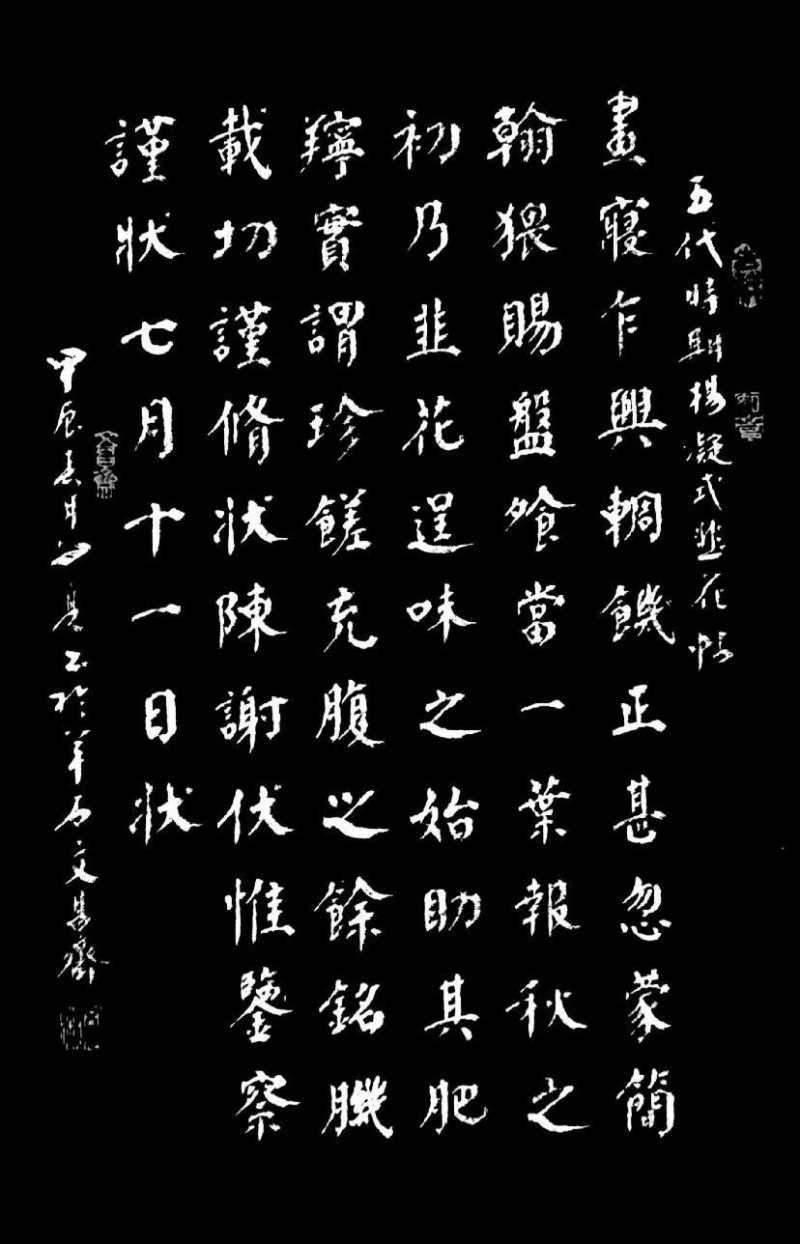 五代時期楊凝式韭花帖
畫寢乍興輖饑正甚忽蒙簡
翰猥賜盤飧當一葉報秋之
初乃韭花逞味之始助其肥
羜實謂珍饈充腹之餘銘膉
載切謹脩狀陳謝伏惟鑒察
謹狀七月十一日狀
甲辰春月 書於羊石文昌齋